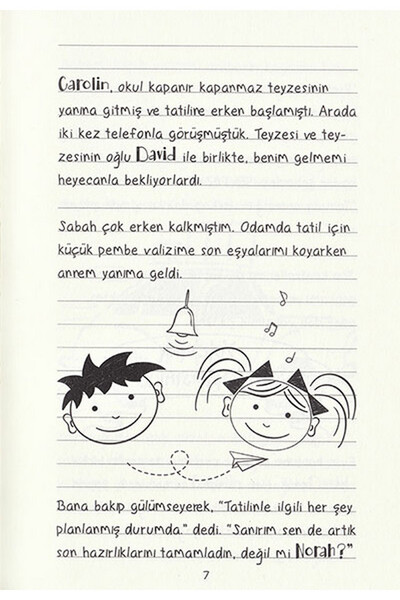 Carolin, okul kapanır kapanmaz teyzesinin
yanına gitmiş ve tatiline erken başlamıştı. Arada
iki kez telefonla görüşmüştük. Teyzesi ve tey-
zesinin oğlu David ile birlikte, benim gelmemi
heyecanla bekliyorlardı.
Sabah çok erken kalkmıştım. Odamda tatil için
küçük pembe valizime son eşyalarımı koyarken
annem yanıma geldi.
Bana bakıp gülümseyerek, "Tatilinle ilgili her şey
planlanmış durumda." dedi. "Sanırım sen de artık
son hazırlıklarını tamamladın, değil mi Norah?"
7